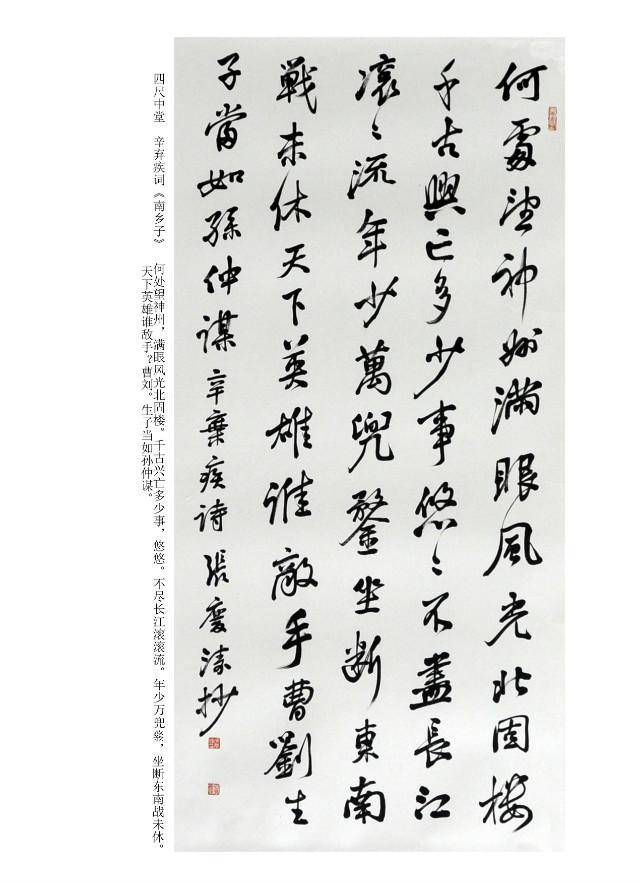 何處望神州滿眼風光北固樓
千古興亡多少事悠〻不盡長江
滾〻流年少萬兜鍪坐斷東南
戦未休天下英雄誰敵手曹劉生
子當如孫仲謀 辛棄疾詩 張慶抄
四尺中堂 辛弃疾词《南乡子》 何处望神州，满眼风光北固楼。千古兴亡多少事，悠悠。不尽长江滚滚流。年少万兜鍪，坐断东南战未休。
天下英雄谁敌手？曹刘。生子当如孙仲谋。